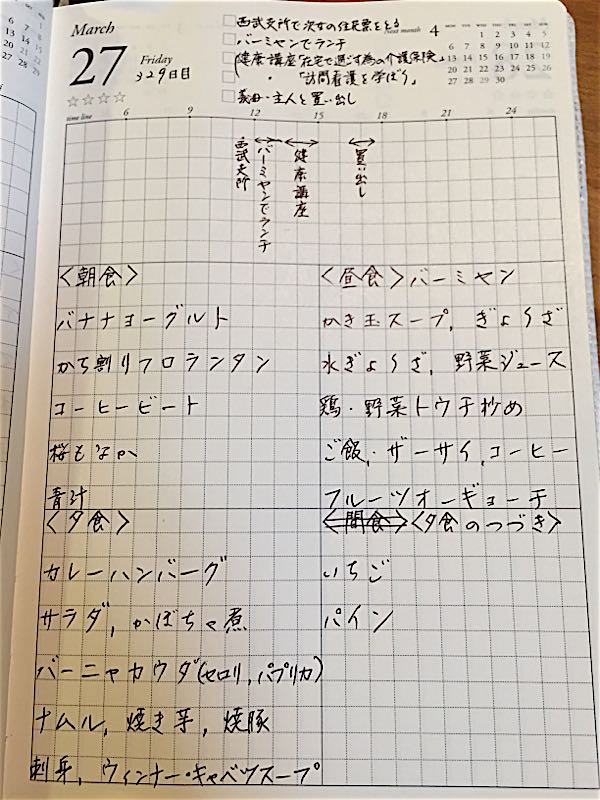 March
27
Friday
329日目
□西武支所で次女の住民票をとる
□バーミヤンでランチ
□健康講座「在宅で過ごす為の介護保険」
・「訪問看護を学ぼう」
□義母・主人と買い出し
Next month 4
MON TUE WED THU FRI SAT SUN
1 2 3 4 5
6 7 8 9 10 11 12
13 14 15 16 17 18 19
20 21 22 23 24 25 26
27 28 29 30
☆☆☆☆
time line 6 9 12 15 18 21 24
西武支所
バーミヤンでランチ
健康講座
買い出し
〈朝食〉
バナナヨーグルト
かち割りフロランタン
コーヒービート
桜もなか
青汁
〈昼食〉バーミヤン
かき玉スープ, ぎょうざ
水ぎょうざ, 野菜ジュース
鶏・野菜トウチ炒め
ご飯, ザーサイ, コーヒー
フルーツオーギョーチ
〈夕食〉
カレーハンバーグ
サラダ, かぼちゃ煮
バーニャカウダ(セロリ, パプリカ)
ナムル, 焼き芋, 焼豚
刺身, ウィンナー・キャベツスープ
〈間食〉〈夕食のつづき〉
いちご
パイン